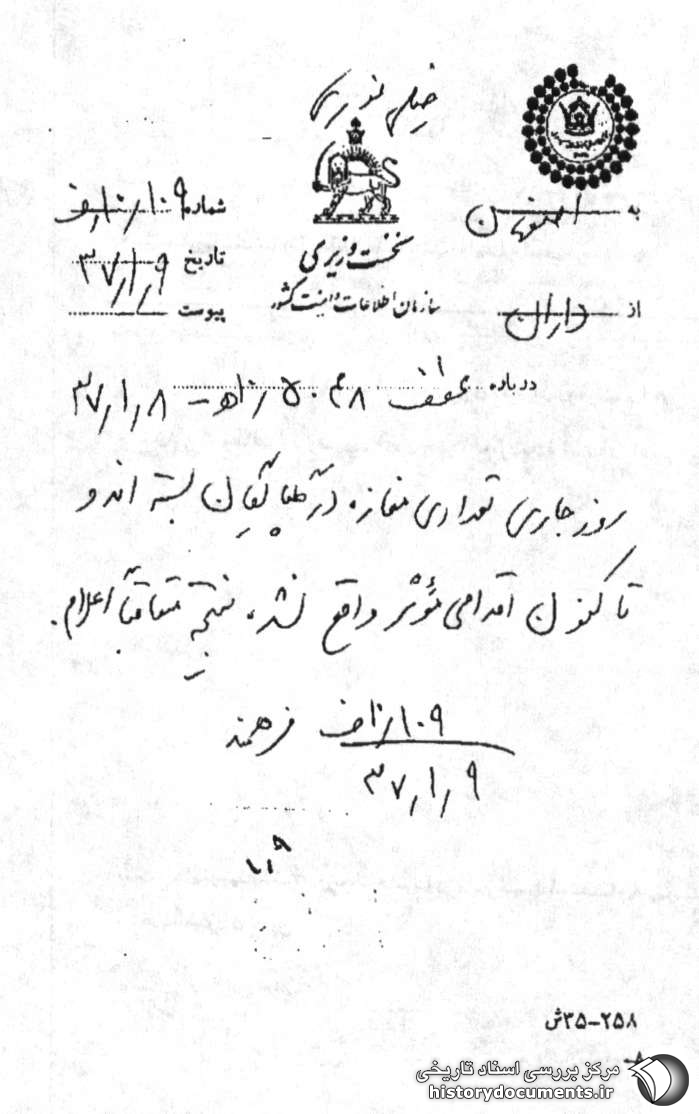 خیلی فوری
به اصفهان
شماره ۱۰۹/زاف
نخست وزیری
تاریخ ۳۷/۱/۹
سازمان اطلاعات و امنیت کشور
از داران
پیوست
درباره عطف ۵۰۸ /زاه‍ - ۳۷/۱/۸
روز جاری تعدادی مغازه در بسته اند و
تا کنون اقدامی مؤثر واقع نشده نتیجه متعاقباً اعلام.
۱۰۹/زاف فرهمند
۳۷/۱/۹
۱/۹
۲۵۸-۳۵ش
۸-
مرکز بررسی اسناد تاریخی
historydocuments.ir